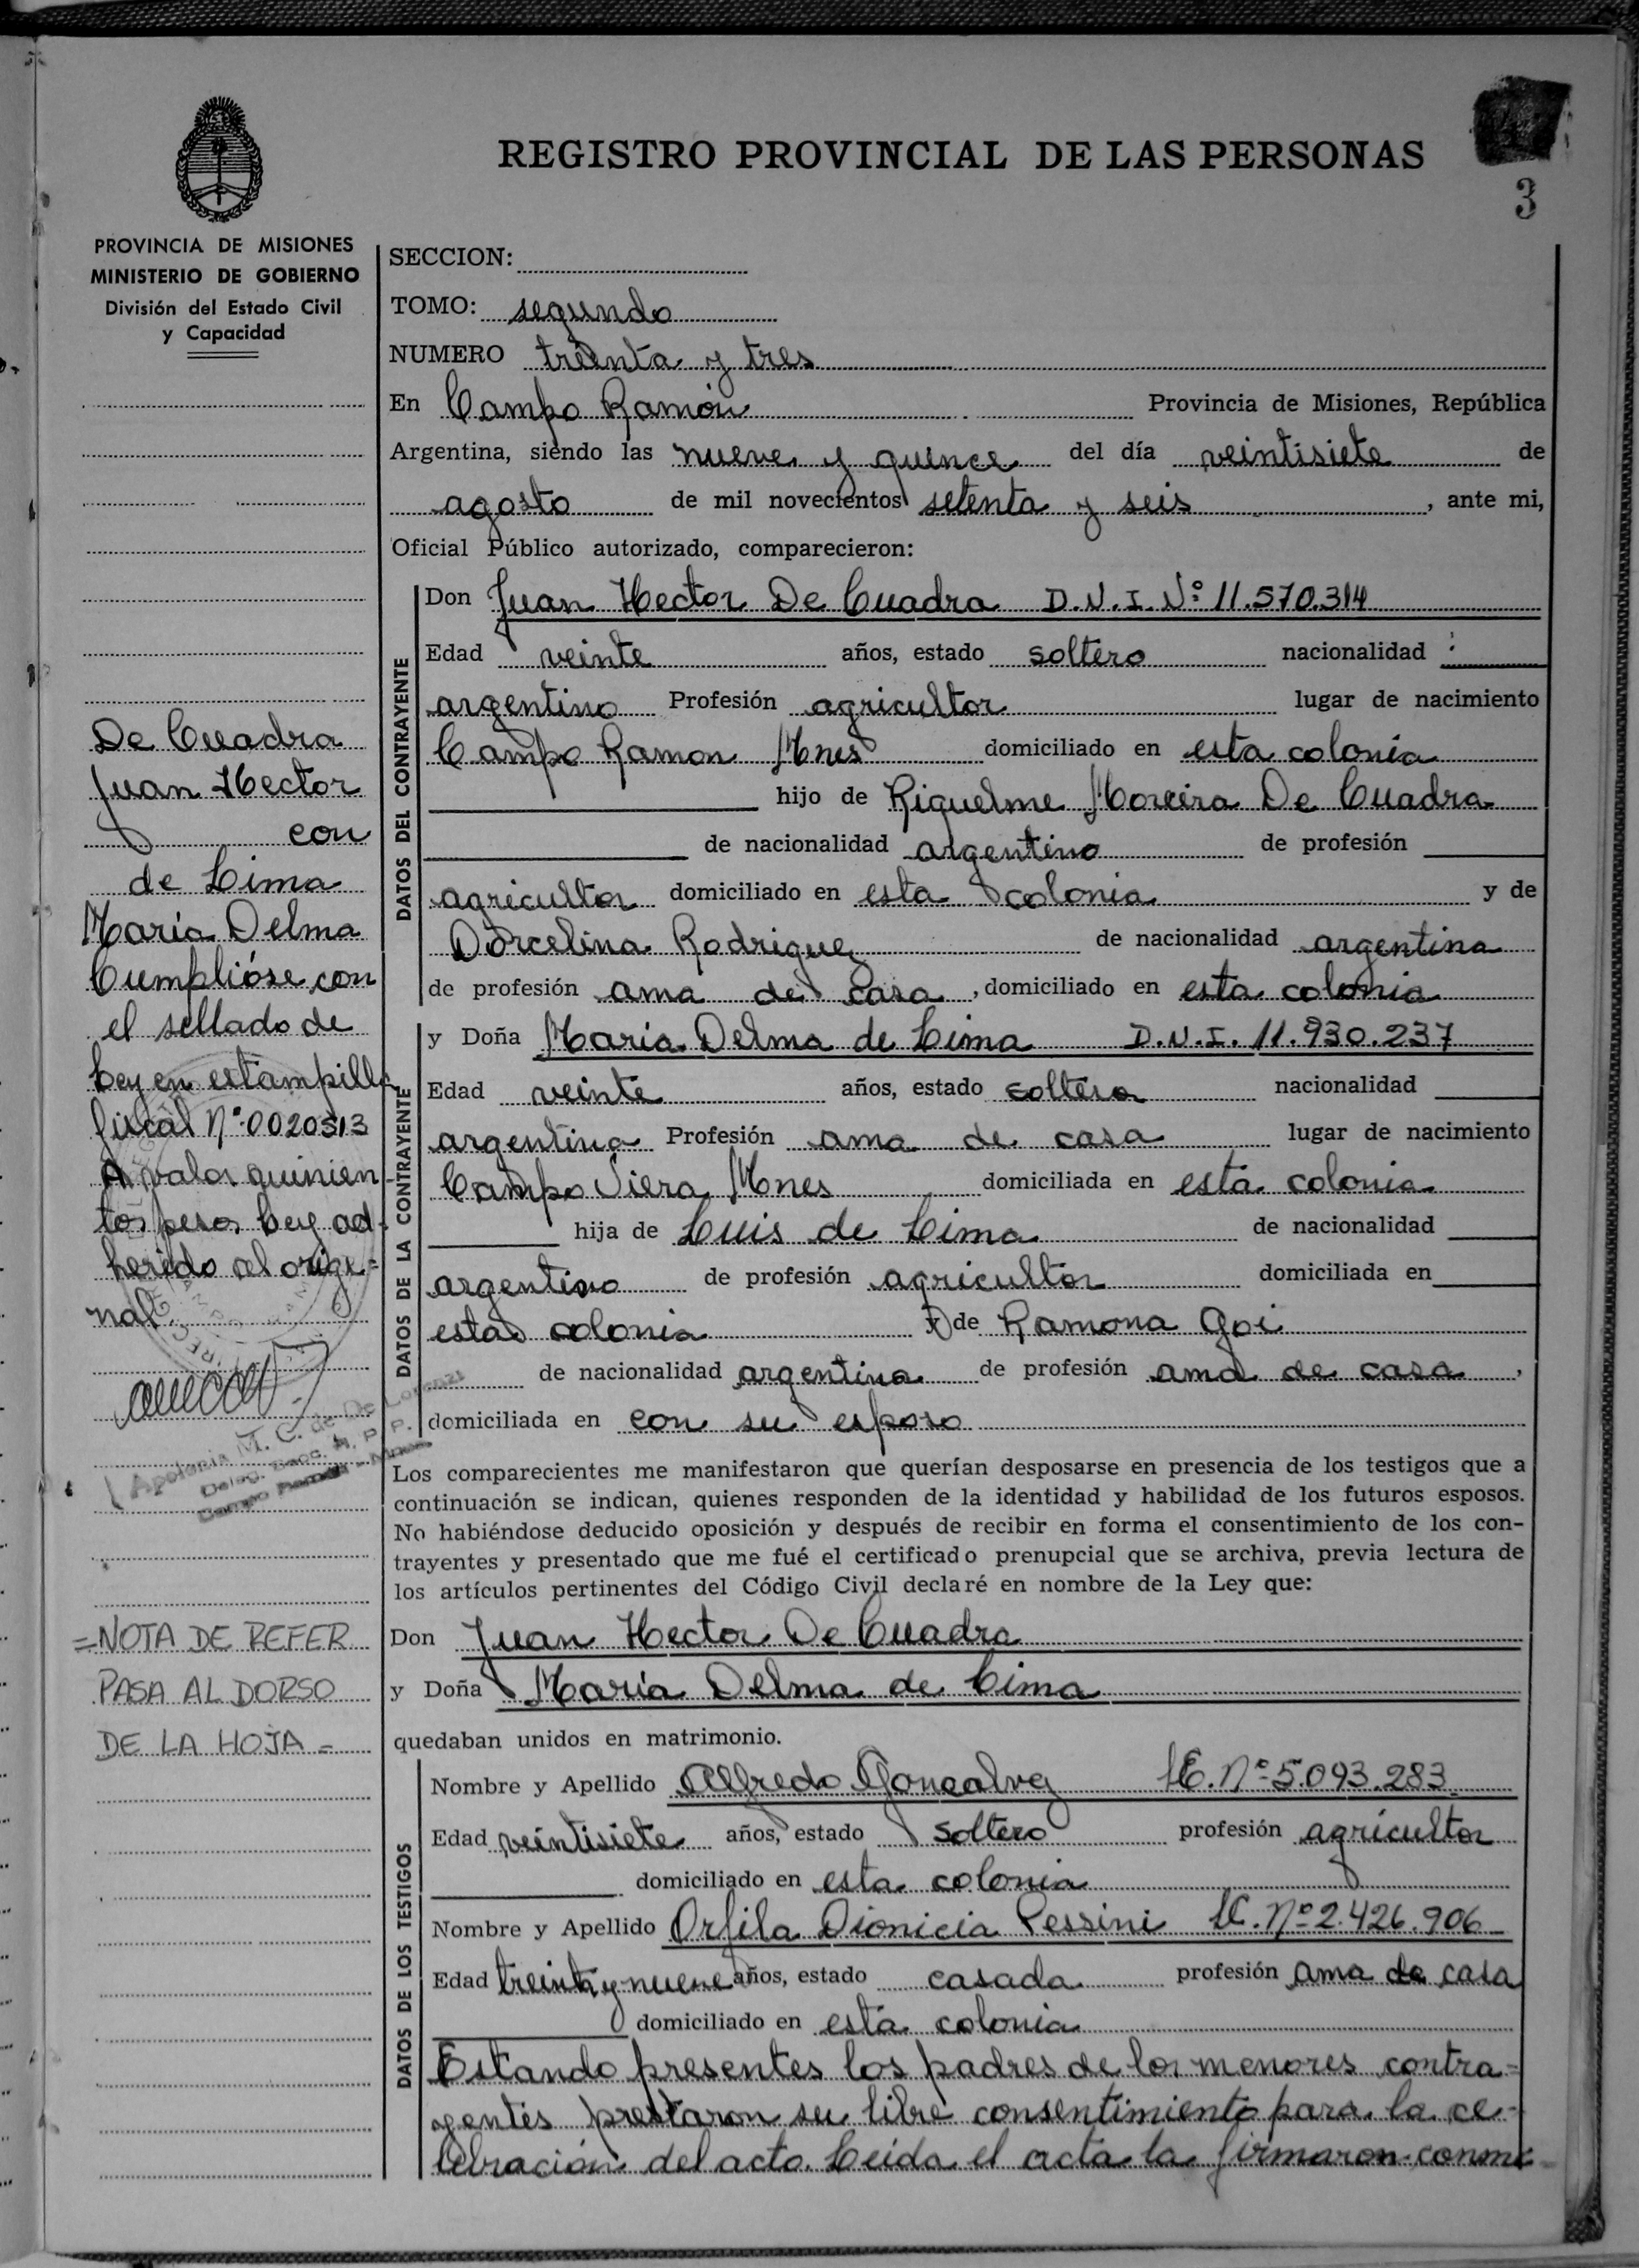 REGISTRO PROVINCIAL DE LAS PERSONAS
3
PROVINCIA DE MISIONES
MINISTERIO DE GOBIERNO
División del Estado Civil
y Capacidad
De Cuadra
Juan Hector
con
de Lima
María Delma
Cumplióse con
el sellado de
Ley en estampilla
fiscal Nº 0020513
valor quinien
tos pesos Ley ad-
herido al origi=
nal.
Apolonia M. C. de De Lorenzi
Deleg. Secc. R. P. P.
Campo Ramón - Mnes
=NOTA DE REFER
PASA AL DORSO
DE LA HOJA=
SECCION:
TOMO: segundo
NUMERO treinta y tres
En Campo Ramón Provincia de Misiones, República
Argentina, siendo las nueve y quince del día veintisiete de
agosto de mil novecientos setenta y seis, ante mi,
Oficial Público autorizado, comparecieron:
DATOS DEL CONTRAYENTE
Don Juan Hector De Cuadra D.N.I. Nº 11.570.314
Edad veinte años, estado soltero nacionalidad
argentino Profesión agricultor lugar de nacimiento
Campo Ramon Mnes domiciliado en esta colonia
hijo de Riquelme Moreira De Cuadra
de nacionalidad argentino de profesión
agricultor domiciliado en esta colonia y de
Dorcelina Rodriguez de nacionalidad argentina
de profesión ama de casa, domiciliado en esta colonia
DATOS DE LA CONTRAYENTE
y Doña María Delma de Lima D.N.I. 11.930.237
Edad veinte años, estado soltera nacionalidad
argentina Profesión ama de casa lugar de nacimiento
Campo Viera Mnes domiciliada en esta colonia
hija de Luis de Lima de nacionalidad
argentino de profesión agricultor domiciliada en
esta colonia y de Ramona Goi
de nacionalidad argentina de profesión ama de casa,
domiciliada en con su esposo
Los comparecientes me manifestaron que querían desposarse en presencia de los testigos que a
continuación se indican, quienes responden de la identidad y habilidad de los futuros esposos.
No habiéndose deducido oposición y después de recibir en forma el consentimiento de los con-
trayentes y presentado que me fué el certificado prenupcial que se archiva, previa lectura de
los artículos pertinentes del Código Civil declaré en nombre de la Ley que:
Don Juan Hector De Cuadra
y Doña María Delma de Lima
quedaban unidos en matrimonio.
DATOS DE LOS TESTIGOS
Nombre y Apellido Alfredo Gonzalvez LE. Nº 5.093.283
Edad veintisiete años, estado soltero profesión agricultor
domiciliado en esta colonia
Nombre y Apellido Orfila Dionicia Pessini LC. Nº 2.426.906
Edad treinta y nueve años, estado casada profesión ama de casa
domiciliado en esta colonia
Estando presentes los padres de los menores contra=
yentes prestaron su libre consentimiento para la ce-
lebración del acto. Leida el acta la firmaron conmi-